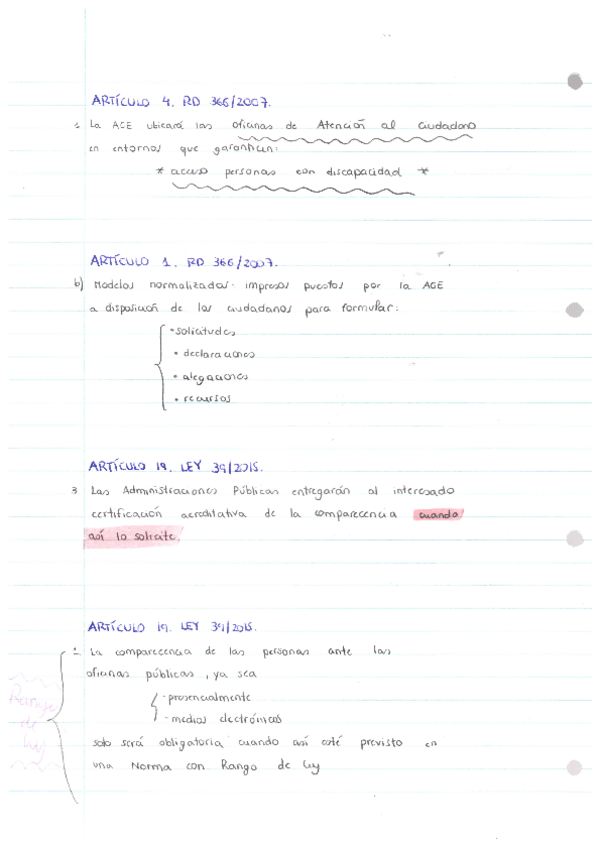 ARTÍCULO 4. RD 366/2007.
1. La AGE ubicará las oficinas de Atención al ciudadano
en entornos que garanticen:
* acceso personas con discapacidad *
ARTÍCULO 1. RD 366/2007.
b) Modelos normalizados: impresos puestos por la AGE
a disposición de los ciudadanos para formular:
• solicitudes
• declaraciones
• alegaciones
• recursos
ARTÍCULO 19. LEY 39/2015.
3 Las Administraciones Públicas entregarán al interesado
certificación acreditativa de la comparecencia cuando
así lo solicite.
ARTÍCULO 19. LEY 39/2015.
1. La comparecencia de las personas ante las
oficinas públicas, ya sea
- presencialmente
- medios electrónicos
solo será obligatoria cuando así esté previsto en
una Norma con Rango de ley
Rango
de
ley